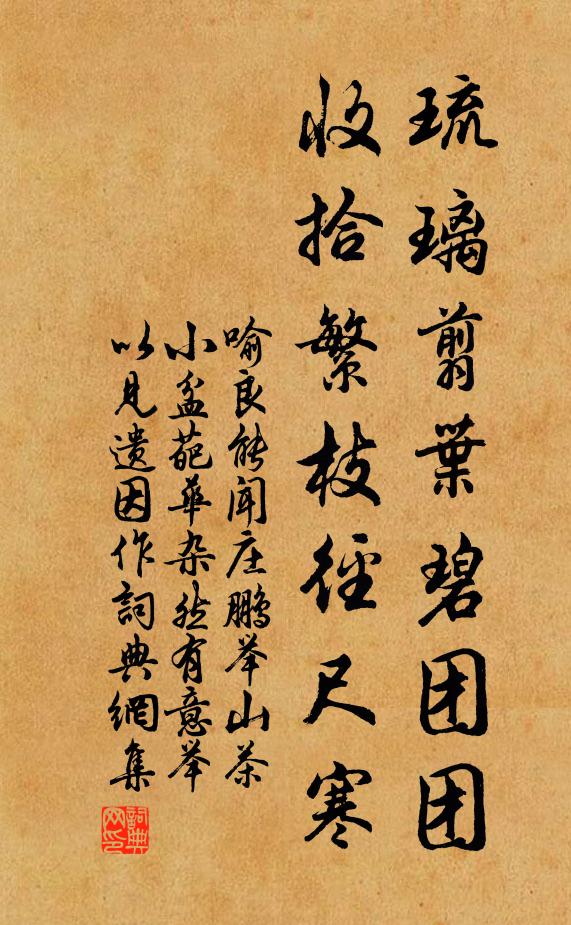 琉璃翦葉碧团团
收拾繁枝徑尺寒
喻良能闻庄鹏举山茶
小盆葩華杂然有意举
以見遗因作詞典網集
詞典网印